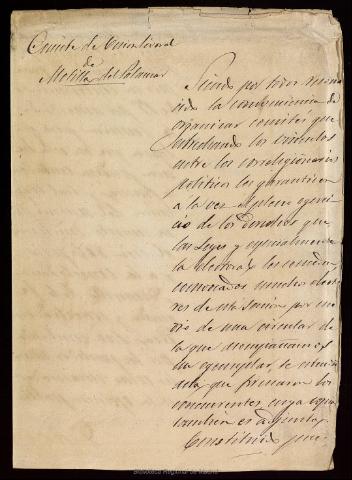 Comite de Union liberal
de
Motilla del Palancar
Siendo por todos recono
cida la conveniencia de
organizar comites que
estrechando los vinculos
entre los correligionarios
politicos les garanticen
a la vez el pleno ejerci
cio de los derechos que
las Leyes y especialmente
la electoral les conceden
convocados muchos electo
res de esta Seccion por me
dio de una circular de
la que acompañamos
un ejemplar, se estendió
acta que firmaron los
concurrentes cuya copia
tambien es adjunta.
Constituido pues
Biblioteca Regional de Madrid